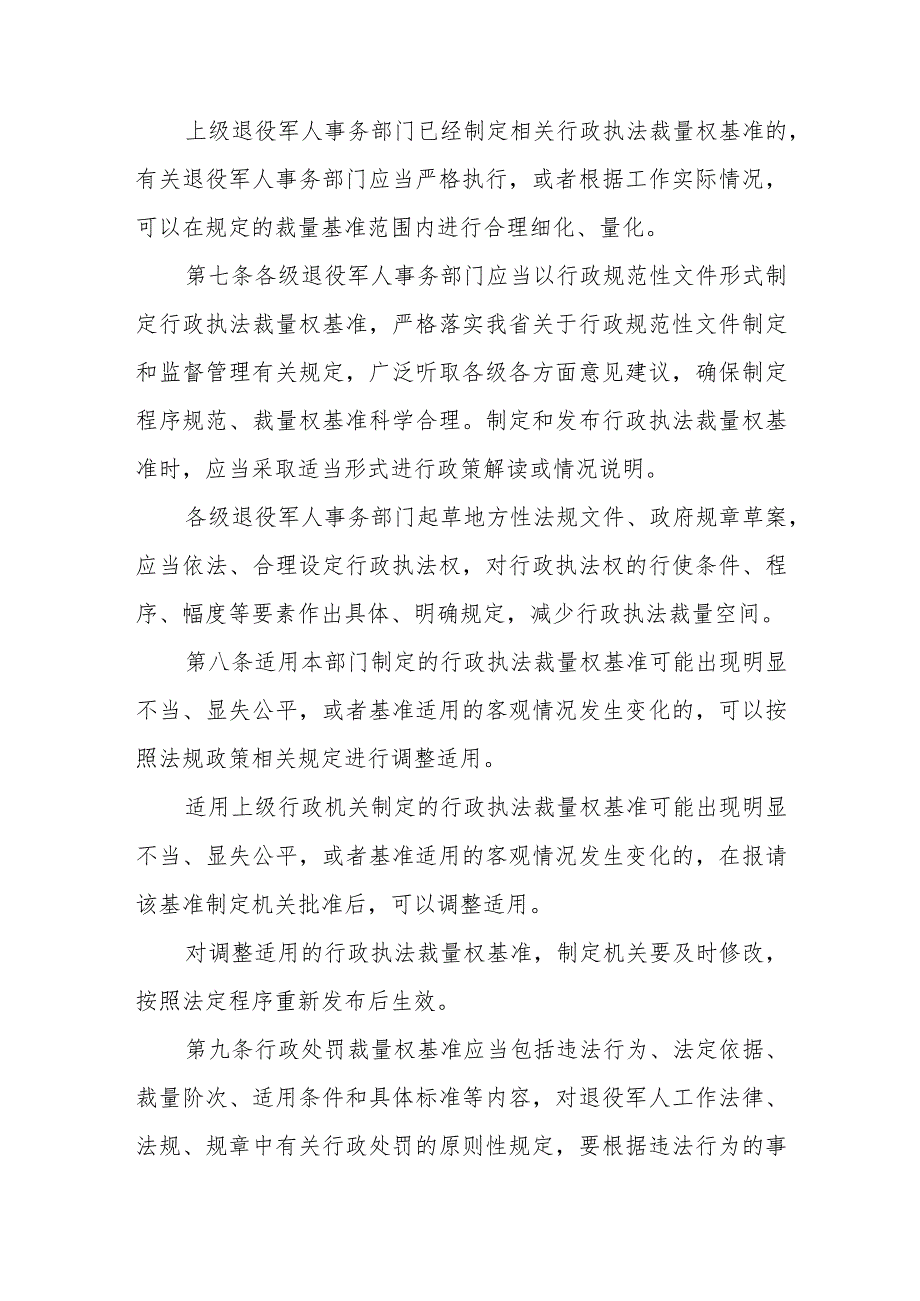 上级退役军人事务部门已经制定相关行政执法裁量权基准的，
有关退役军人事务部门应当严格执行，或者根据工作实际情况，
可以在规定的裁量基准范围内进行合理细化、量化。
第七条各级退役军人事务部门应当以行政规范性文件形式制
定行政执法裁量权基准，严格落实我省关于行政规范性文件制定
和监督管理有关规定，广泛听取各级各方面意见建议，确保制定
程序规范、裁量权基准科学合理。制定和发布行政执法裁量权基
准时，应当采取适当形式进行政策解读或情况说明。
各级退役军人事务部门起草地方性法规文件、政府规章草案，
应当依法、合理设定行政执法权，对行政执法权的行使条件、程
序、幅度等要素作出具体、明确规定，减少行政执法裁量空间。
第八条适用本部门制定的行政执法裁量权基准可能出现明显
不当、显失公平，或者基准适用的客观情况发生变化的，可以按
照法规政策相关规定进行调整适用。
适用上级行政机关制定的行政执法裁量权基准可能出现明显
不当、显失公平，或者基准适用的客观情况发生变化的，在报请
该基准制定机关批准后，可以调整适用。
对调整适用的行政执法裁量权基准，制定机关要及时修改，
按照法定程序重新发布后生效。
第九条行政处罚裁量权基准应当包括违法行为、法定依据、
裁量阶次、适用条件和具体标准等内容，对退役军人工作法律、
法规、规章中有关行政处罚的原则性规定，要根据违法行为的事